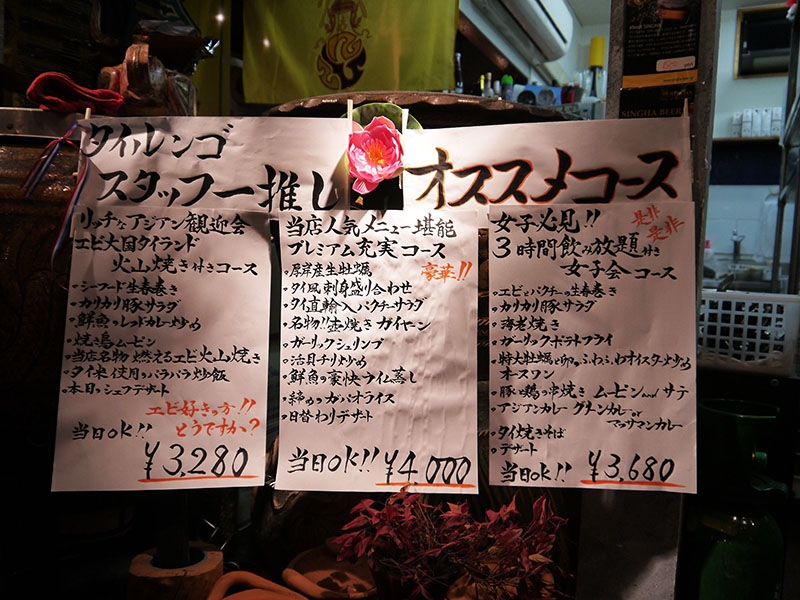 タイレンゴ
スタッフ一推し オススメコース
リッチなアジアン観迎会
エビ大国タイランド
火山焼き付きコース
・シーフード生春巻き
・カリカリ豚サラダ
・鮮魚のレッドカレー炒め
・焼き鳥ムーピン
・当店名物 燃えるエビ火山焼き
・タイ米使用のパラパラ炒飯
・本日のシェフデザート
エビ好きの方!!
どうですか?
当日OK!!
¥3,280
当店人気メニュー堪能
プレミアム充実コース
豪華!!
・厚岸産生牡蠣
・タイ風刺身盛り合わせ
・タイ直輸入パクチーサラダ
・名物!!壺焼きガイヤーン
・ガーリックシュリンプ
・活貝チリ炒め
・鮮魚の豪快ライム蒸し
・締めのガパオライス
・日替わりデザート
当日OK!! ¥4,000
女子必見!!
是非是非
3時間飲み放題付き
女子会コース
・エビとパクチーの生春巻き
・カリカリ豚サラダ
・海老焼き
・ガーリックポテトフライ
・特大牡蠣と卵のふわふわオイスター炒め
オースワン
・豚と鶏の串焼き ムーピンandサテ
・アジアンカレー グリーンカレーor
マッサマンカレー
・タイ焼きそば
・デザート
当日OK!! ¥3,680
SINGHA BEER